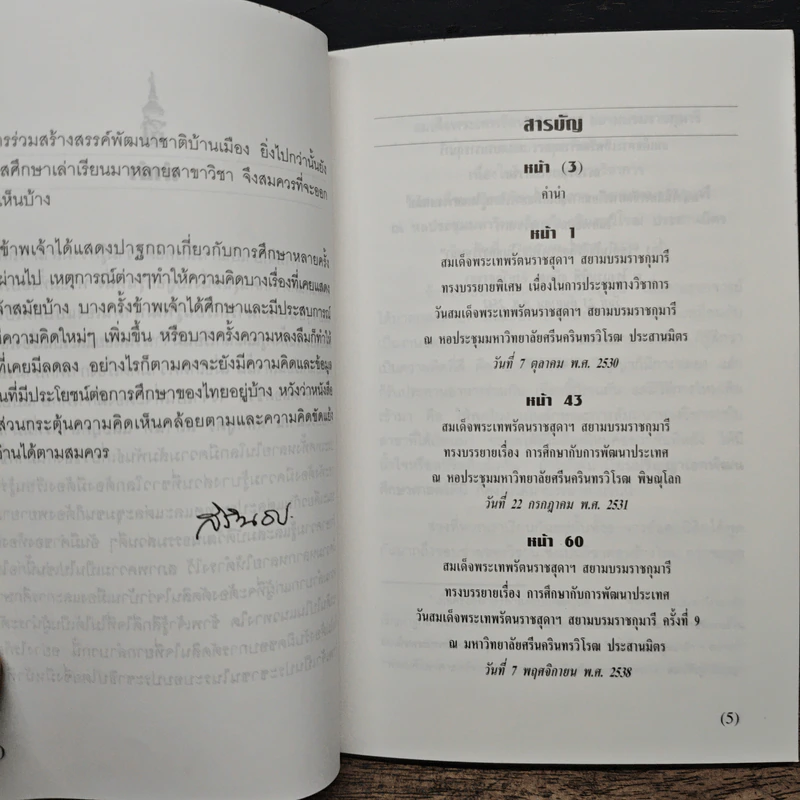 ารร่วมสร้างสรรค์พัฒนาชาติบ้านเมือง ยิ่งไปกว่านั้นยัง
สศึกษาเล่าเรียนมาหลายสาขาวิชา จึงสมควรที่จะออก
เห็นบ้าง
ข้าพเจ้าได้แสดงปาฐกถาเกี่ยวกับการศึกษาหลายครั้ง
ผ่านไป เหตุการณ์ต่างๆทำให้ความคิดบางเรื่องที่เคยแสดง
ล้าสมัยบ้าง บางครั้งข้าพเจ้าได้ศึกษาและมีประสบการณ์
มีความคิดใหม่ๆ เพิ่มขึ้น หรือบางครั้งความหลงลืมก็ทำให้
ที่เคยมีลดลง อย่างไรก็ตามคงจะยังมีความคิดและข้อมูล
นที่มีประโยชน์ต่อการศึกษาของไทยอยู่บ้าง หวังว่าหนังสือ
ส่วนกระตุ้นความคิดเห็นคล้อยตามและความคิดขัดแย้ง
่านได้ตามสมควร
สิรินธร
สารบัญ
หน้า (3)
คำนำ
หน้า 1
สมเด็จพระเทพรัตนราชสุดาฯ สยามบรมราชกุมารี
ทรงบรรยายพิเศษ เนื่องในการประชุมทางวิชาการ
วันสมเด็จพระเทพรัตนราชสุดาฯ สยามบรมราชกุมารี
ณ หอประชุมมหาวิทยาลัยศรีนครินทรวิโรฒ ประสานมิตร
วันที่ 7 ตุลาคม พ.ศ. 2530
หน้า 43
สมเด็จพระเทพรัตนราชสุดาฯ สยามบรมราชกุมารี
ทรงบรรยายเรื่อง การศึกษากับการพัฒนาประเทศ
ณ หอประชุมมหาวิทยาลัยศรีนครินทรวิโรฒ พิษณุโลก
วันที่ 22 กรกฎาคม พ.ศ. 2531
หน้า 60
สมเด็จพระเทพรัตนราชสุดาฯ สยามบรมราชกุมารี
ทรงบรรยายเรื่อง การศึกษากับการพัฒนาประเทศ
วันสมเด็จพระเทพรัตนราชสุดาฯ สยามบรมราชกุมารี ครั้งที่ 9
ณ มหาวิทยาลัยศรีนครินทรวิโรฒ ประสานมิตร
วันที่ 7 พฤศจิกายน พ.ศ. 2538
(5)